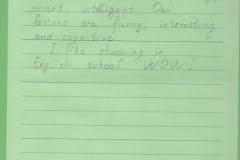 smart, intelligent. Our
lessons are funny, interesting
and cognitive.
I like studying in
English school WOW!